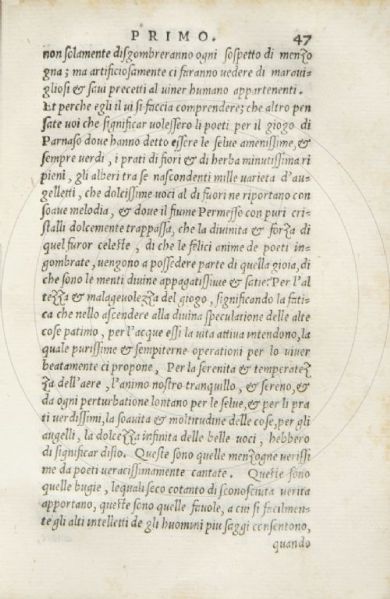 PRIMO. 47
non solamente disgombreranno ogni sospetto di menzo
gna; ma artificiosamente ci faranno uedere di maraui-
gliosi & saui precetti al uiuer humano appartenenti.
Et perche egli il ui si faccia comprendere; che altro pen
sate uoi che significar uolessero li poeti per il giogo di
Parnaso doue hanno detto essere le selue amenissime, &
sempre uerdi, i prati di fiori & di herba minutissima ri
pieni, gli alberi tra se nascondenti mille uarieta d'au-
gelletti, che dolcissime uoci al di fuori ne riportano con
soaue melodia, & doue il fiume Permesso con puri cri-
stalli dolcemente trappassa, che la diuinita & forza di
quel furor celeste, di che le felici anime de poeti in-
gombrate, uengono a possedere parte di quella gioia, di
che sono le menti diuine appagatissiue & satie: Per l'al
tezza & malageuolezza del giogo, significando la fati-
ca che nello ascendere alla diuina speculatione delle alte
cose patimo, per l'acque essi la uita attiua intendono, la
quale purissime & sempiterne operationi per lo uiuer
beatamente ci propone, Per la serenita & temperatez
za dell'aere, l'animo nostro tranquillo, & sereno, &
da ogni perturbatione lontano per le selue, & per li pra
ti uerdissimi, la soauita & moltitudine delle cose, per gli
augelli, la dolcezza infinita delle belle uoci, hebbero
di significar disio. Queste sono quelle menzogne uerissi
me da poeti ueracissimamente cantate. Queste sono
quelle bugie, lequali seco cotanto di sconosciuta uerita
apportano, queste sono quelle fauole, a cui si facilmen-
te gli alti intelletti de gli huomini piu saggi consentono,
quando